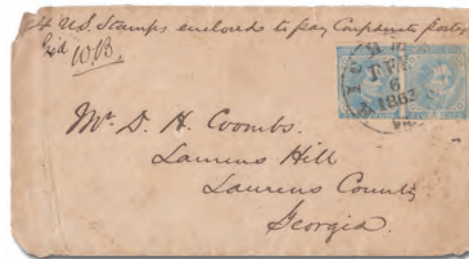 4 U.S. Stamps enclosed to pay Confederate postage
W.B.
RICH
FEB
6
1863
VA.
Mr. D. H. Coombs.
Laurens Hill
Laurens County
Georgia.